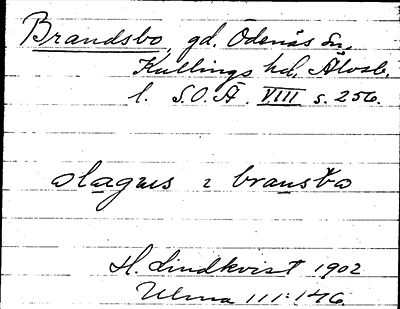 Brandsbo, gd. Ödenäs sn,
Kullings hd, Älvsb.
l. S.O.Ä. VIII s. 256.
slagus i
H. Lindkvist 1902
Ulma 111:146.